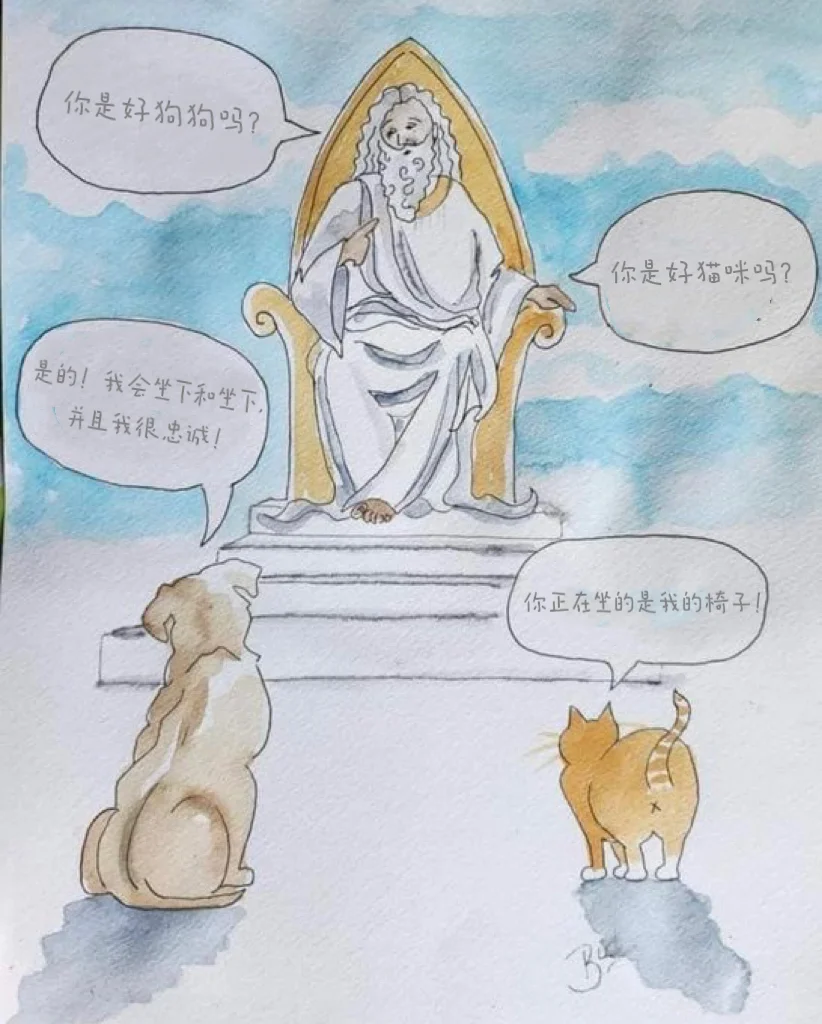 你是好狗狗吗?
你是好猫咪吗?
是的! 我会坐下和坐下,
并且我很忠诚!
你正在坐的是我的椅子!